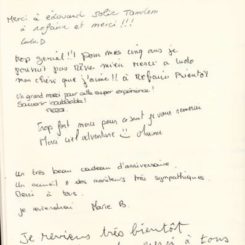 Merci à Edouard Solée Tandem
à refaire et merci !!!
trop génial !! pour mes cinq ans je
pouvait pas rêver mieux merci a ludo
mon chéri que j'aime !! à Refaire Bientôt
Un grand merci pour cette super expérience !
Souvenir inoubliable !
Trop fort merci pour ce saut je vous remercie
Merci ciel adventure
Un très beau cadeau d'anniversaire.
Un accueil & des moniteurs très sympathiques
Merci à tous
je reviendrai Marie B.
Je reviens très bientôt
à tous